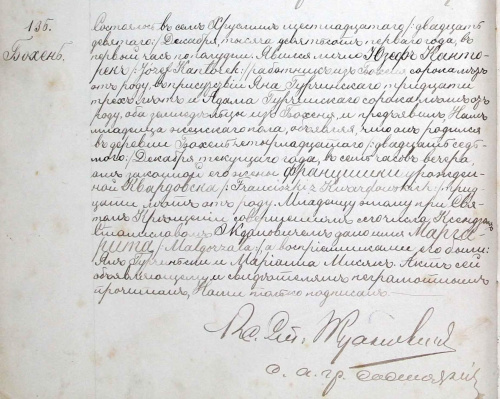 135.
Бохенъ.
Состоялось въ селѣ шестнадцатаго /: двадцать
девятаго /: Декабря, тысяча девятьсотъ перваго года, въ
первый часъ пополудни. Явился лично Юзефъ Канто-
рекъ /: Józef Kantorek:/ работникъ изъ сорока лѣтъ
отъ роду, въ присутствіи Яна тридцати
трехъ лѣтъ и Адама сорока лѣтъ отъ
роду, оба земледѣльцы изъ Бохеня и предъявилъ Намъ
младенца женскаго пола, объявляя, что онъ родился
въ деревнѣ Бохень четырнадцатаго /: двадцать седь-
маго /: Декабря текущаго года, въ семь часовъ вечера,
отъ законной его жены Францишки урожден-
ной Квардовска /: Franciszki z :/ трид-
цати лѣтъ отъ роду. Младенцу этому при Свя-
томъ Крещеніи совершенномъ сего числа, Ксендзомъ
Станиславомъ дано имя Марга-
рита /: Małgorzata:/, а воспріемниками его были:
Янъ и Маріанна Мисякъ. Актъ сей
объявляющему и свидѣтелямъ неграмотнымъ
прочитанъ, Нами только подписанъ.
Кс.
с. а. гр.